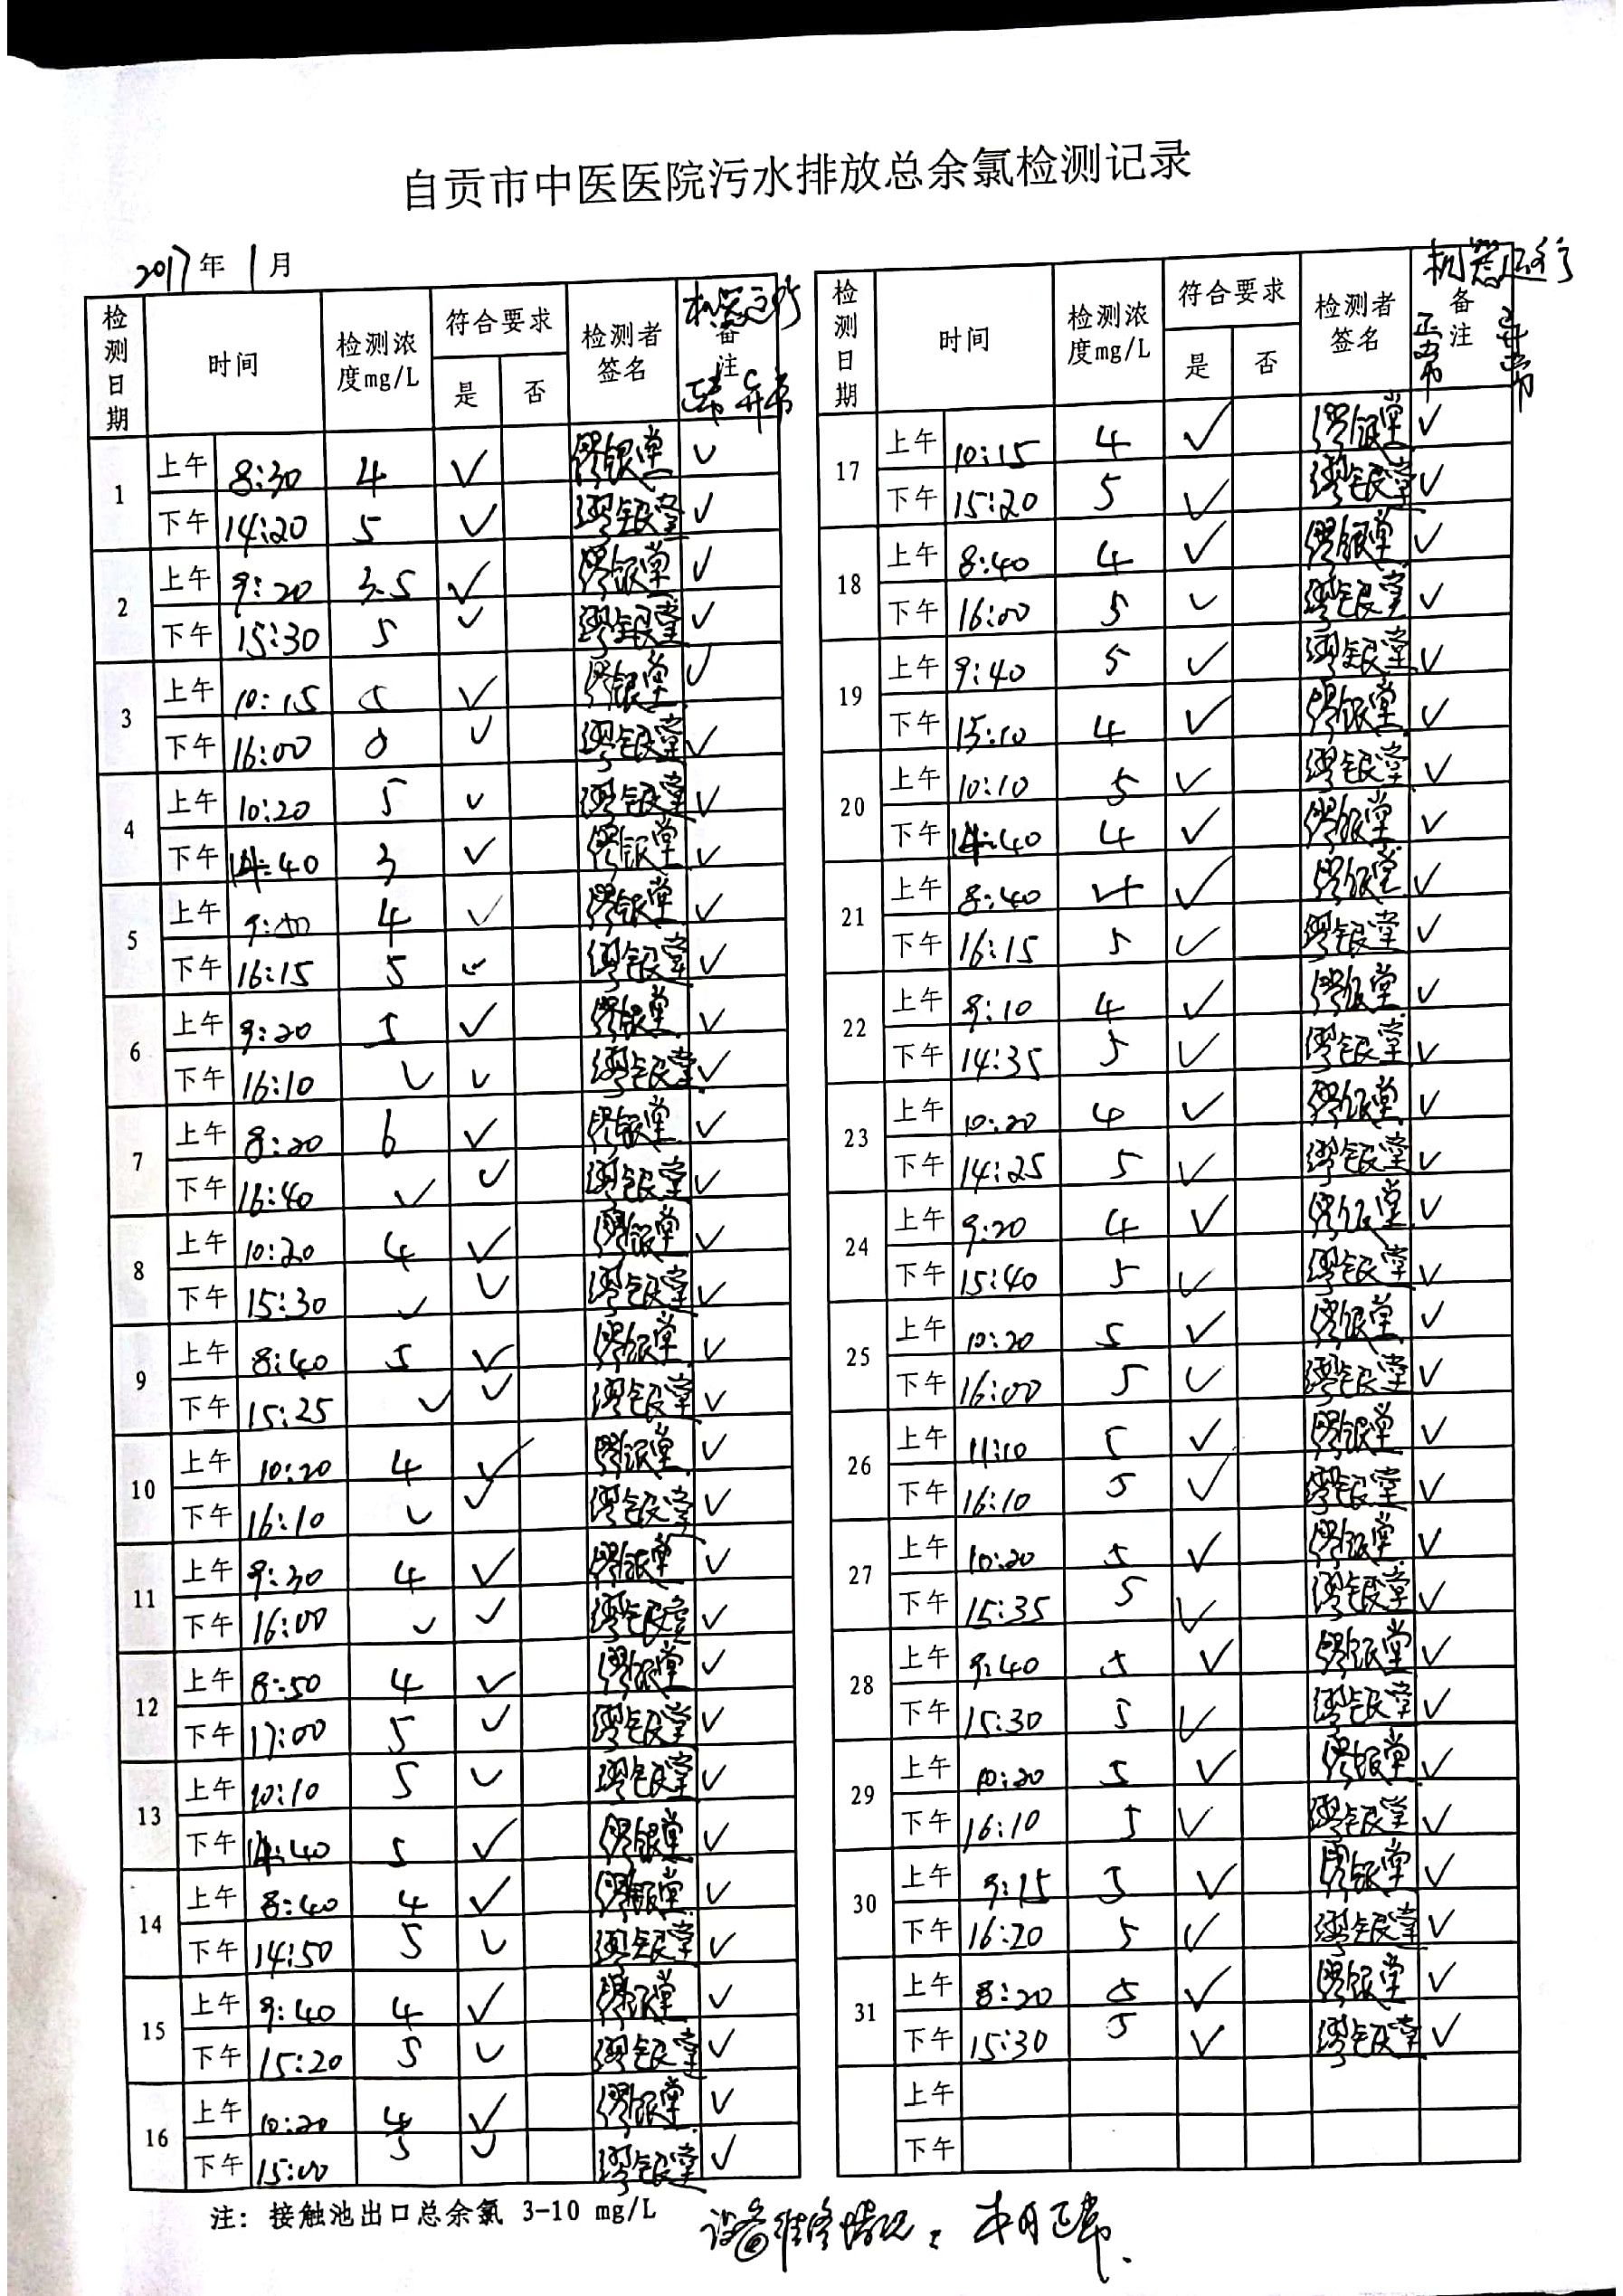 自贡市中医医院污水排放总余氯检测记录
2017年1月
检测日期 时间 检测浓度mg/L 符合要求 是 否 检测者签名 备注 机器运行 正常 异常
1 上午 8:30 4 ✓ 缪银堂 ✓
下午 14:20 5 ✓ 缪银堂 ✓
2 上午 9:20 3.5 ✓ 缪银堂 ✓
下午 15:30 5 ✓ 缪银堂 ✓
3 上午 10:15 5 ✓ 缪银堂 ✓
下午 16:00 ✓ 缪银堂 ✓
4 上午 10:20 5 ✓ 缪银堂 ✓
下午 14:40 3 ✓ 缪银堂 ✓
5 上午 9:00 4 ✓ 缪银堂 ✓
下午 16:15 5 ✓ 缪银堂 ✓
6 上午 9:20 5 ✓ 缪银堂 ✓
下午 16:10 ✓ ✓ 缪银堂 ✓
7 上午 8:20 6 ✓ 缪银堂 ✓
下午 16:40 ✓ ✓ 缪银堂 ✓
8 上午 10:20 4 ✓ 缪银堂 ✓
下午 15:30 ✓ ✓ 缪银堂 ✓
9 上午 8:40 5 ✓ 缪银堂 ✓
下午 15:25 ✓ ✓ 缪银堂 ✓
10 上午 10:20 4 ✓ 缪银堂 ✓
下午 16:10 ✓ ✓ 缪银堂 ✓
11 上午 9:30 4 ✓ 缪银堂 ✓
下午 16:00 ✓ ✓ 缪银堂 ✓
12 上午 8:50 4 ✓ 缪银堂 ✓
下午 17:00 5 ✓ 缪银堂 ✓
13 上午 10:10 5 ✓ 缪银堂 ✓
下午 14:40 5 ✓ 缪银堂 ✓
14 上午 8:40 4 ✓ 缪银堂 ✓
下午 14:50 5 ✓ 缪银堂 ✓
15 上午 9:40 4 ✓ 缪银堂 ✓
下午 15:20 5 ✓ 缪银堂 ✓
16 上午 10:20 4 ✓ 缪银堂 ✓
下午 15:00 5 ✓ 缪银堂 ✓
检测日期 时间 检测浓度mg/L 符合要求 是 否 检测者签名 备注 机器运行 正常 异常
17 上午 10:15 4 ✓ 缪银堂 ✓
下午 15:20 5 ✓ 缪银堂 ✓
18 上午 8:40 4 ✓ 缪银堂 ✓
下午 16:00 5 ✓ 缪银堂 ✓
19 上午 9:40 5 ✓ 缪银堂 ✓
下午 15:10 4 ✓ 缪银堂 ✓
20 上午 10:10 5 ✓ 缪银堂 ✓
下午 14:40 4 ✓ 缪银堂 ✓
21 上午 8:40 4 ✓ 缪银堂 ✓
下午 16:15 5 ✓ 缪银堂 ✓
22 上午 9:10 4 ✓ 缪银堂 ✓
下午 14:35 5 ✓ 缪银堂 ✓
23 上午 10:20 4 ✓ 缪银堂 ✓
下午 14:25 5 ✓ 缪银堂 ✓
24 上午 9:20 4 ✓ 缪银堂 ✓
下午 15:40 5 ✓ 缪银堂 ✓
25 上午 10:20 5 ✓ 缪银堂 ✓
下午 16:00 5 ✓ 缪银堂 ✓
26 上午 11:10 5 ✓ 缪银堂 ✓
下午 16:10 5 ✓ 缪银堂 ✓
27 上午 10:20 5 ✓ 缪银堂 ✓
下午 15:35 5 ✓ 缪银堂 ✓
28 上午 9:40 5 ✓ 缪银堂 ✓
下午 15:30 5 ✓ 缪银堂 ✓
29 上午 10:20 5 ✓ 缪银堂 ✓
下午 16:10 5 ✓ 缪银堂 ✓
30 上午 9:15 5 ✓ 缪银堂 ✓
下午 16:20 5 ✓ 缪银堂 ✓
31 上午 8:20 5 ✓ 缪银堂 ✓
下午 15:30 5 ✓ 缪银堂 ✓
上午
下午
注: 接触池出口总余氯 3-10 mg/L
设备维修情况: 本月正常.